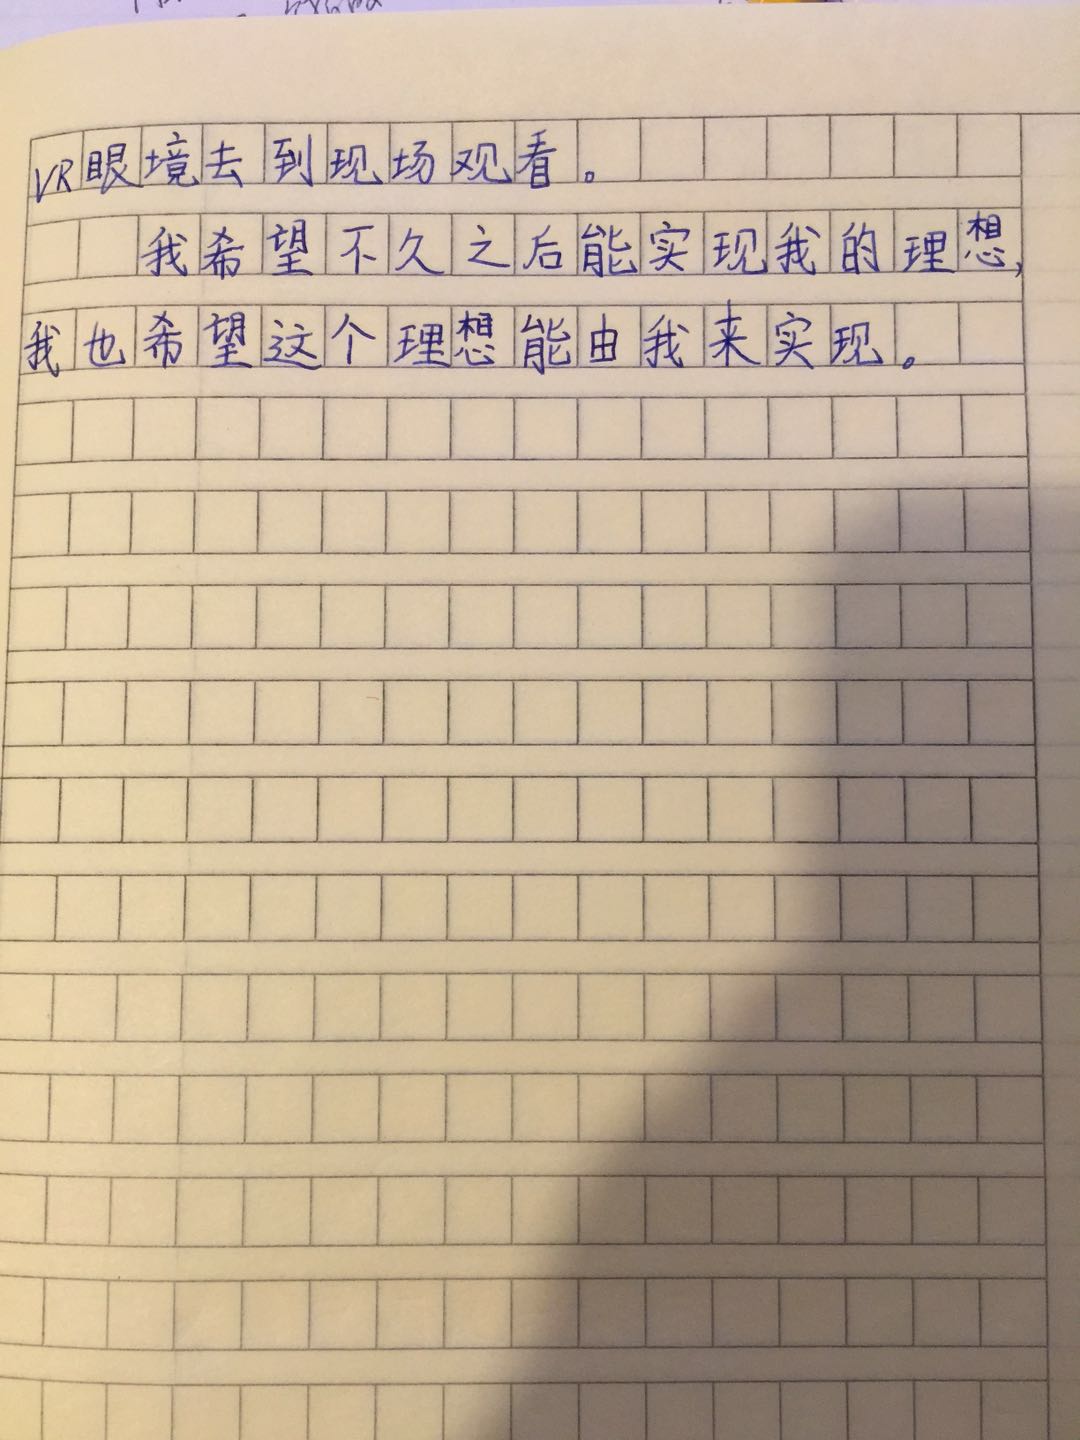 VR眼境去到现场观看。
我希望不久之后能实现我的理想,
我也希望这个理想能由我来实现。